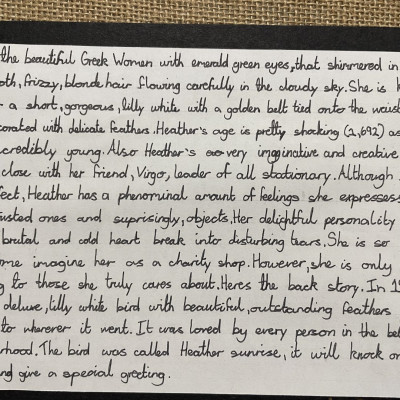 the beautiful Greek Women with emerald green eyes, that shimmered in
oth, frizzy, blonde hair flowing carefully in the cloudy sky. She is
a short, gorgeous, lilly white with a golden belt tied onto the waist
corated with delicate feathers. Heather's age is pretty shocking (2,692) as
credibly young. Also Heather's very imginative and creative
close with her friend, Virgo, leader of all stationary. Although
fect, Heather has a phenominal amount of feelings she expresses
usted ones and suprisingly, objects. Her delightful personality
brutal and cold heart break into disturbing tears. She is so
ome imagine her as a charity shop. However, she is only
g to those she truly cares about. Heres the back story. In 1
deluxe, lilly white bird with beautiful, outstanding feathers
to wherever it went. It was loved by every person in the bei
rhood. The bird was called Heather sunrise, it will knock on
nd give a special greeting.